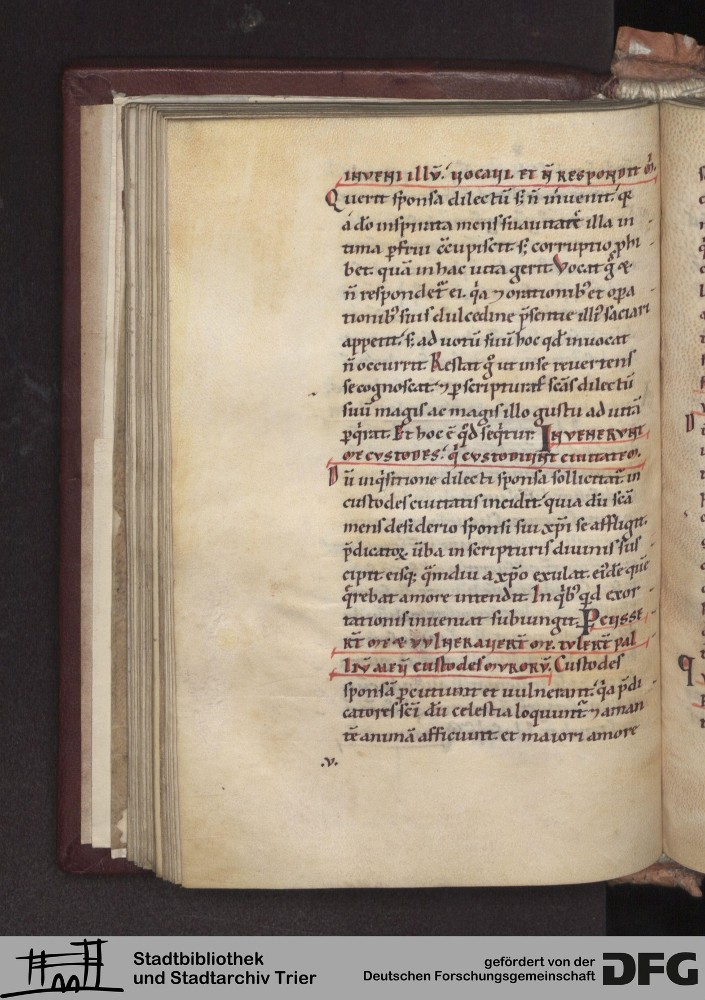 INVENI illū. vocavi. et n̄ respondit m̄.
Querit sponsa dilectū sꝫ n̄ invenit. qr
a dō inspirata mens suavitatē illa in
tima ꝑfrui ccupiscit. sꝫ corruptio ꝓhi
bet. quā in hac vita gerit. Vocat gͦ &
n̄ respondet͛ ei. qa ⁊ orationibꝰ et opa
tionibꝰ suis dulcedine psentie illiꝰ saciari
appetit. sꝫ ad votū suū hoc qd invocat
n̄ occurrit. Restat gͦ ut in se revertens
se cognoscat. ⁊ ꝑ scripturas scās dilectū
suū magis ac magis illo gustu ad vitā
ꝑqrat. Et hoc ē qd seqtur. INVENERUNT
me custodes. q custodiunt civitatem.
Dū inqsitione dilecti sponsa sollicitat͛. in
custodes civitatis incidit. quia dū scā
mens desiderio sponsi sui xpi se affligit.
p̄dicatoꝝ. ūba in scripturis divinis sus
cipit. eisqꝫ qmdiu a xpo exulat. eidē quē
qrebat amore intendit. In qbꝰ qd exor
tationis inveniat subiungit. Pcusse
rt me & vulneravert me. tulert pal
liū meū custodes murorū. Custodes
sponsā ꝑcutiunt et vulnerant. qa p̄di
catores sci dū celestia loquunt͛. ⁊ aman
tē animā afficiunt. et maiori amore
.v.
Stadtbibliothek
und Stadtarchiv Trier
gefördert von der
Deutschen Forschungsgemeinschaft
DFG